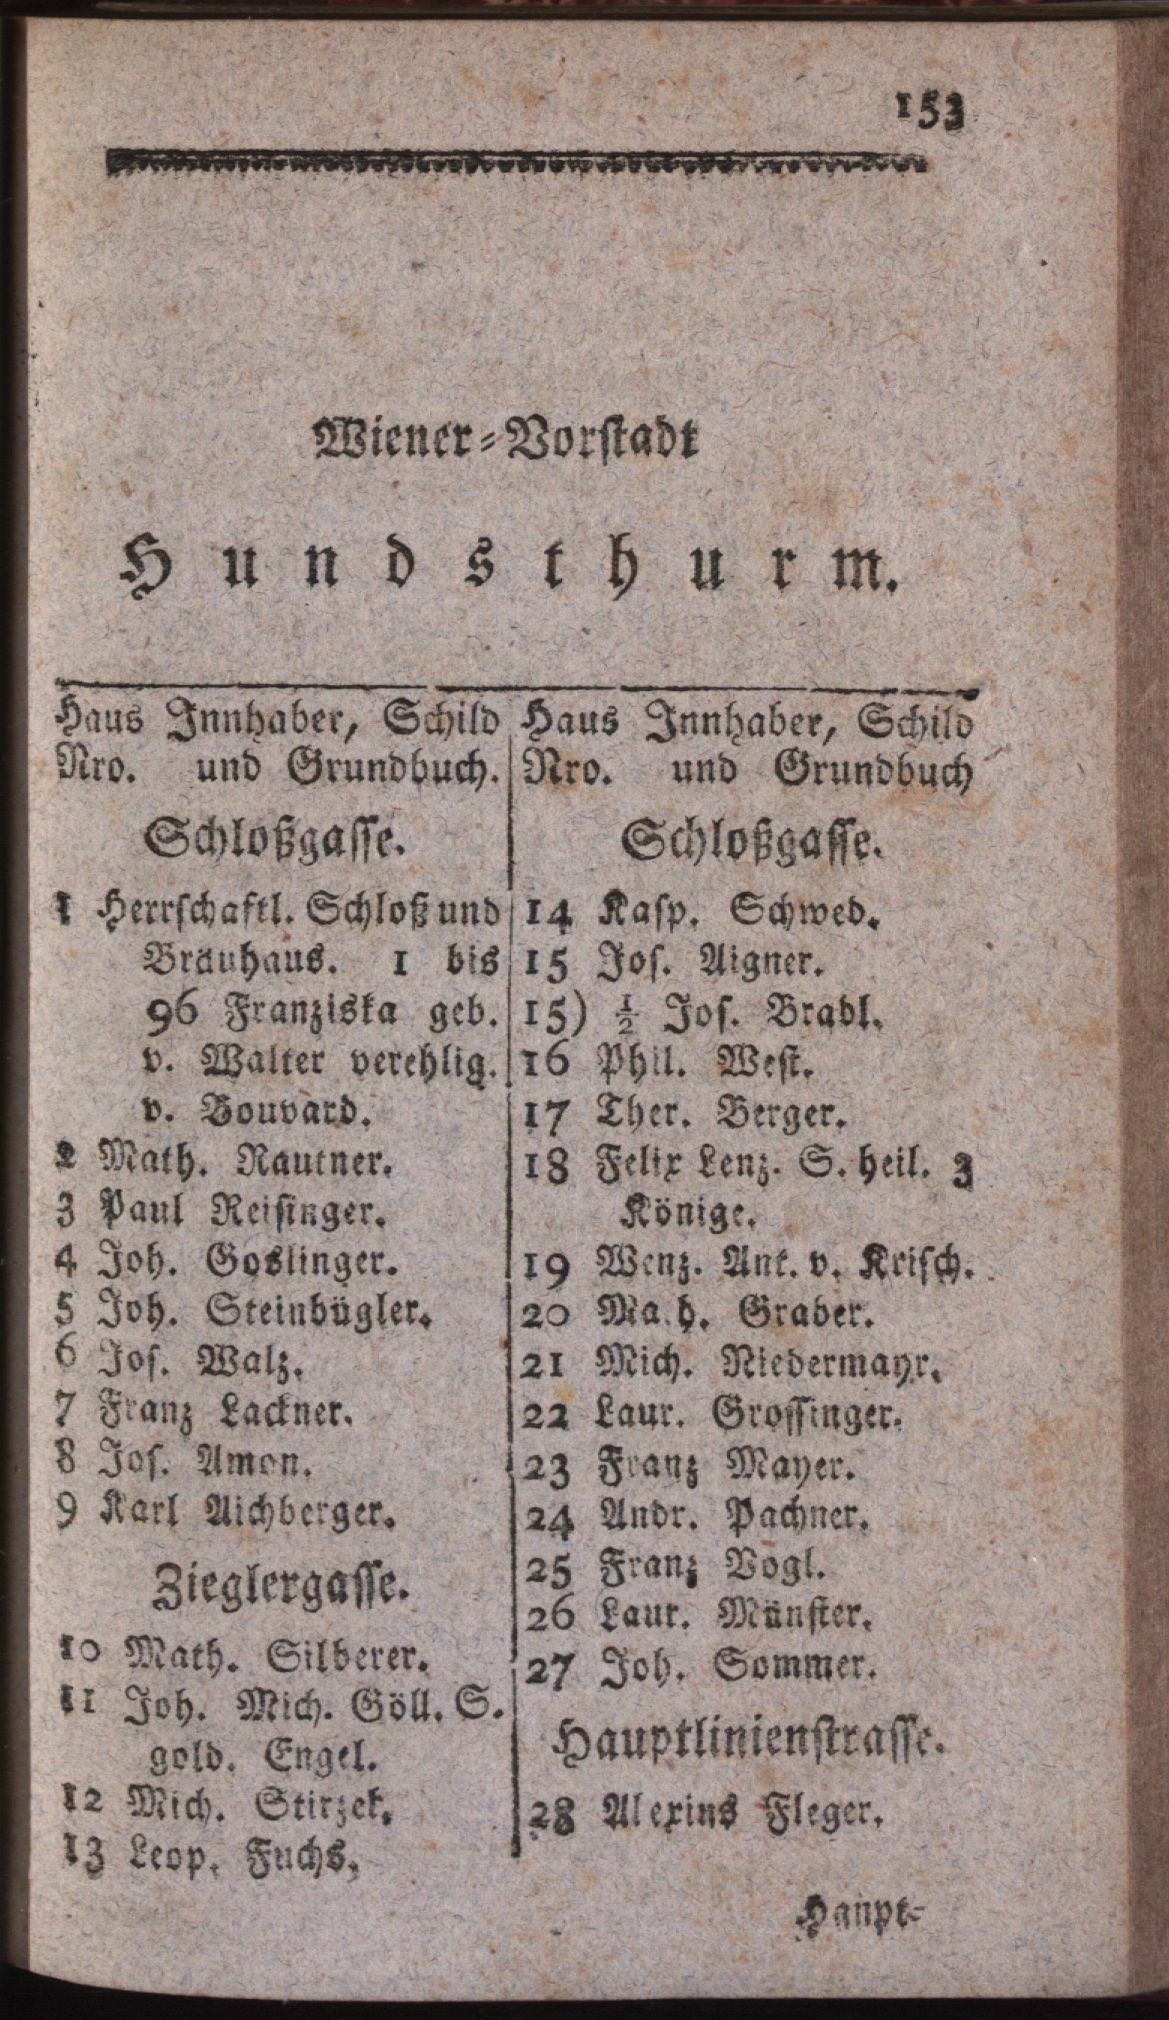 153
Wiener-Vorstadt
Hundsthurm.
Haus Innhaber, Schild
Nro. und Grundbuch.
Schloßgasse.
1 Herrschaftl. Schloß und
Bräuhaus. 1 bis
96 Franziska geb.
v. Walter verehlig.
v. Bouvard.
2 Math. Rautner.
3 Paul Reisinger.
4 Joh. Goslinger.
5 Joh. Steinbügler.
6 Jos. Walz.
7 Franz Lackner.
8 Jos. Amon.
9 Karl Aichberger.
Zieglergasse.
10 Math. Silberer.
11 Joh. Mich. Göll. S.
gold. Engel.
12 Mich. Stirzek.
13 Leop. Fuchs.
Haus Innhaber, Schild
Nro. und Grundbuch
Schloßgasse.
14 Kasp. Schwed.
15 Jos. Aigner.
15) ½ Jos. Bradl.
16 Phil. West.
17 Ther. Berger.
18 Felix Lenz. S. heil. 3
Könige.
19 Wenz. Ant. v. Krisch.
20 Ma.h. Graber.
21 Mich. Niedermayr.
22 Laur. Grossinger.
23 Franz Mayer.
24 Andr. Pachner.
25 Franz Vogl.
26 Laur. Münster.
27 Joh. Sommer.
Hauptlinienstrasse.
28 Alexius Fleger.
Haupt-